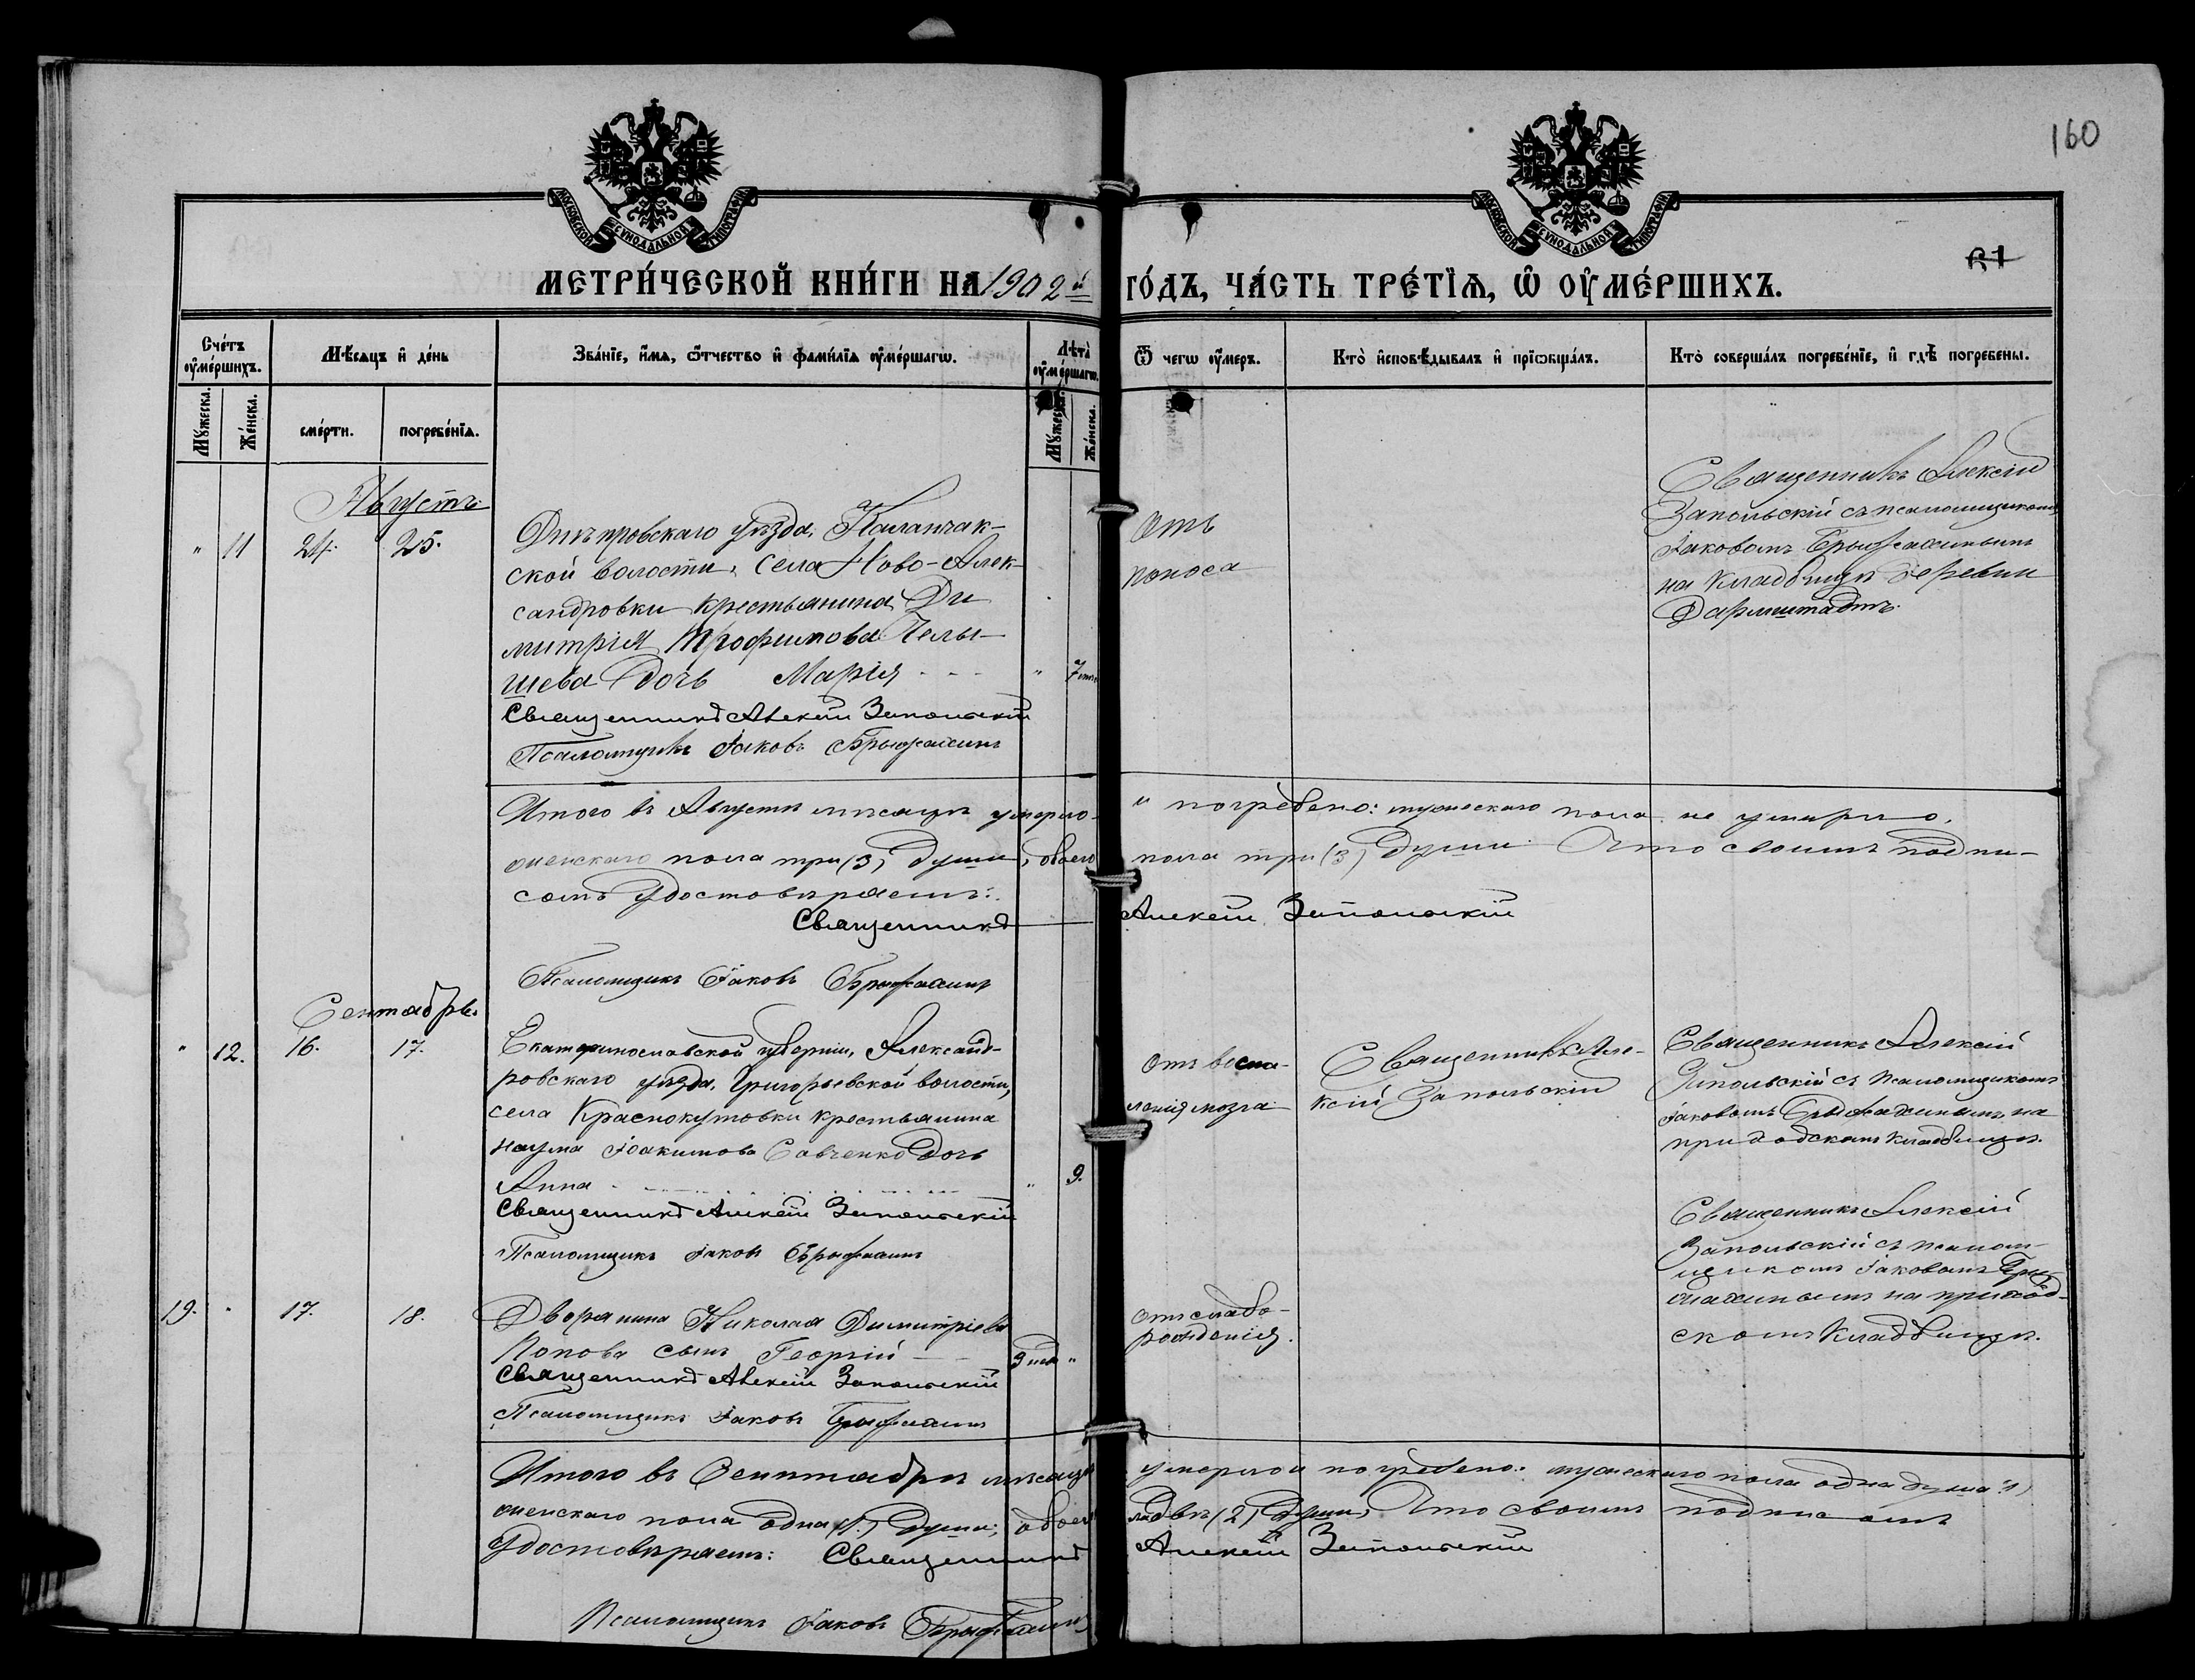 160
МОСКОВСКОЙ СУНОДАЛЬНОЙ ТИПОГРАФІИ
МОСКОВСКОЙ СУНОДАЛЬНОЙ ТИПОГРАФІИ
81
МЕТРИ́ЧЕСКОЙ КНИ́ГИ НА 1902й ГО́ДЪ, ЧА́СТЬ ТРЕ́ТЇѦ, Ѡ҆ ОУ҆МЕ́РШИХЪ.
Сче́тъ оу҆ме́ршихъ.
Мꙋ́жеска.
Же́нска.
Мѣ́сѧцъ и҆ де́нь
сме́рти.
погребе́нїѧ.
Зва́нїе, и҆́мѧ, ѻ҆́тчество и҆ фами́лїѧ оу҆ме́ршагѡ.
Лѣта̀ оу҆ме́ршагѡ.
Мꙋ́жеска.
Же́нска.
Ѿ чегѡ̀ оу҆́меръ.
Кто̀ и҆сповѣ́дывалъ и҆ прїѡбща́лъ.
Кто̀ соверша́лъ погребе́нїе, и҆ гдѣ̀ погребены̀.
Августъ
" 11 24. 25.
Днѣпровскаго уѣзда, Каланчак-
ской волости, села Ново-Алек-
сандровки крестьянина Ди
митрія Трофимова Челы-
шева дочь Марія - - - " 7
Священникъ Алексій Запольскій
Псаломщикъ Іаковъ
Отъ
поноса
Священникъ Алексій
Запольскій съ псаломщикомъ
Іаковомъ
на кладбищѣ деревни
Дармштадтъ.
Итого въ Августѣ мѣсяцѣ умерло и погребено: мужескаго пола не умирало,
женскаго пола три (3) души, обоего пола три (3) души. Что своимъ подпи-
сомъ удостовѣряемъ:
Священникъ Алексій Запольскій
Псаломщикъ Іаковъ
Сентябрь.
" 12. 16. 17.
Екатеринославской губерніи, Александ-
ровскаго уѣзда, Григорьевской волости,
села Краснокутовки крестьянина
Наума Іоакимова Савченко дочь
Анна " 9.
Священникъ Алексій Запольскій
Псаломщикъ Іаковъ
Отъ воспа-
ленія мозга
Священникъ Але-
ксій Запольскій
Священникъ Алексій
Запольскій съ псаломщикомъ
Іаковомъ на
приходскомъ кладбищѣ.
19. " 17. 18.
Дворянина Николая Димитріева
Попова сынъ Георгій "
Священникъ Алексій Запольскій
Псаломщикъ Іаковъ
Отъ слабо-
рожденія.
Священникъ Алексій
Запольскій съ псалом-
щикомъ Іаковомъ
на приход-
скомъ кладбищѣ.
Итого въ Сентябрѣ мѣсяцѣ умерло и погребено: мужескаго пола одна душа (1)
женскаго пола одна (1.) душа; обоего двѣ (2) души. Что своимъ подписомъ
удостовѣряемъ: Священникъ Алексій Запольскій
Псаломщикъ Іаковъ